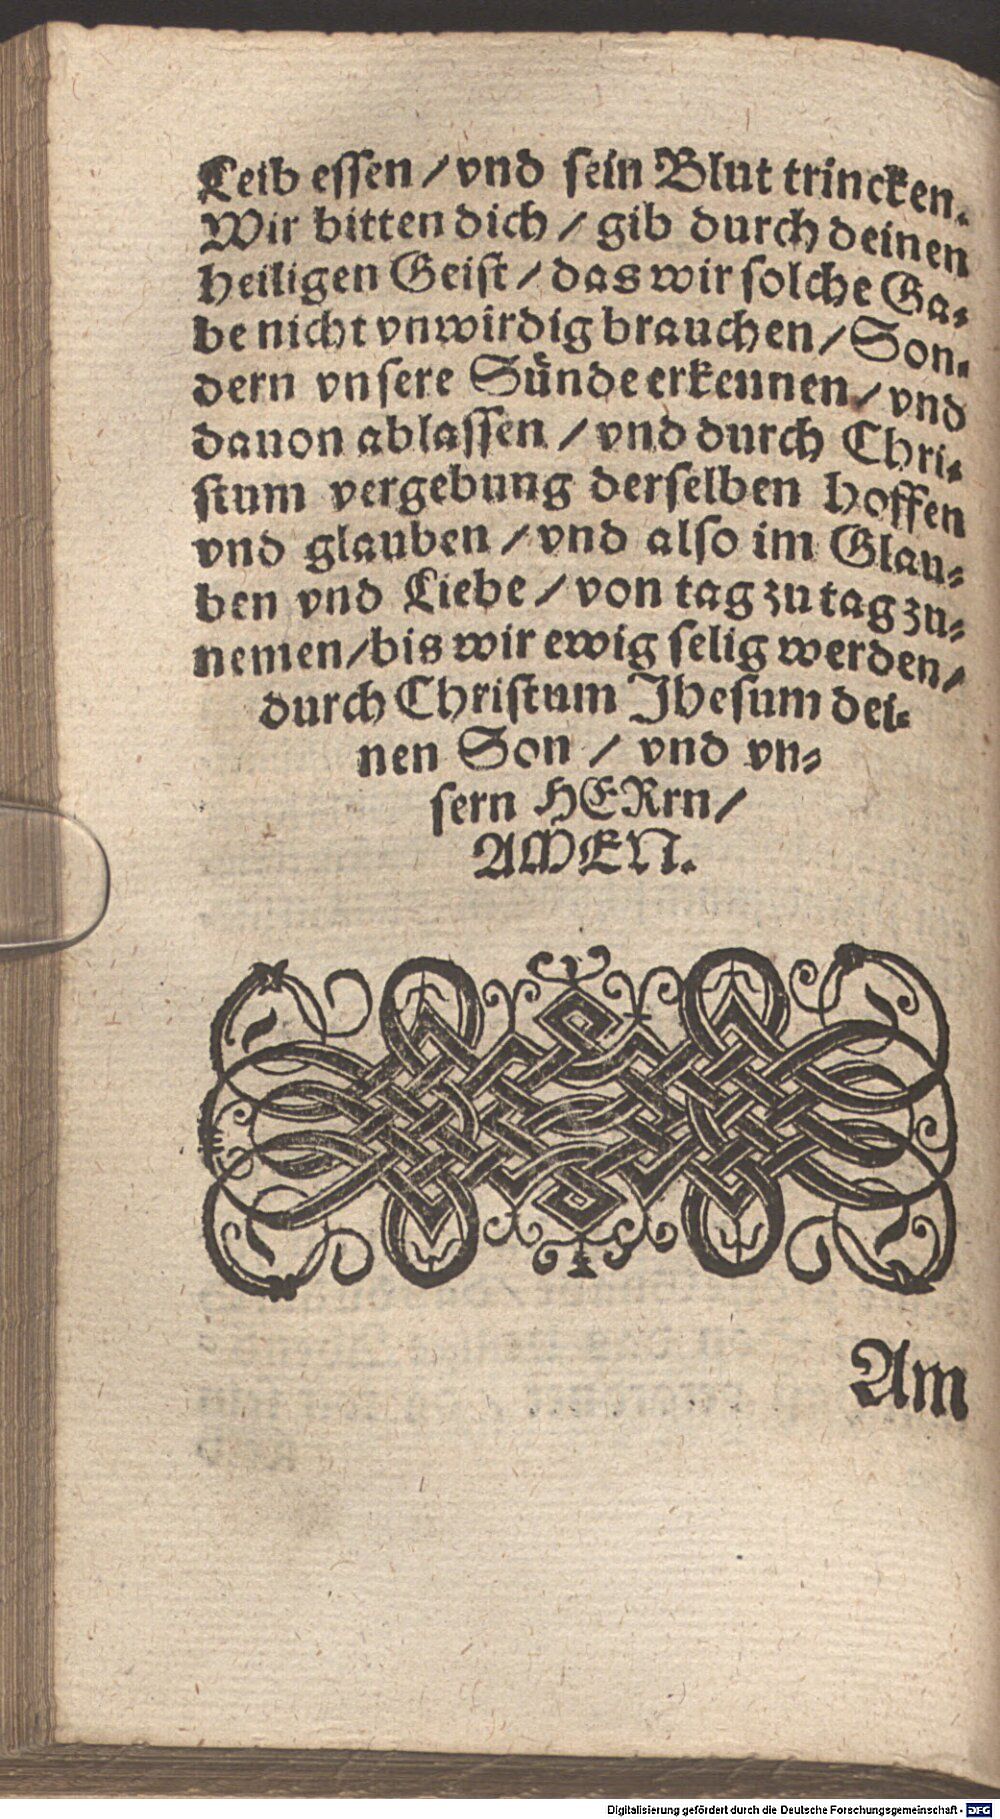 Leib essen / vnd sein Blut trincken.
Wir bitten dich / gib durch deinen
heiligen Geist / das wir solche Ga-
be nicht vnwirdig brauchen / Son-
dern vnsere Sünde erkennen / vnd
dauon ablassen / vnd durch Chri-
stum vergebung derselben hoffen
vnd glauben / vnd also im Glau-
ben vnd Liebe / von tag zu tag zu-
nemen / bis wir ewig selig werden /
durch Christum Jhesum dei-
nen Son / vnd vn-
sern HERrn /
AMEN.
Am
Digitalisierung gefördert durch die Deutsche Forschungsgemeinschaft - DFG